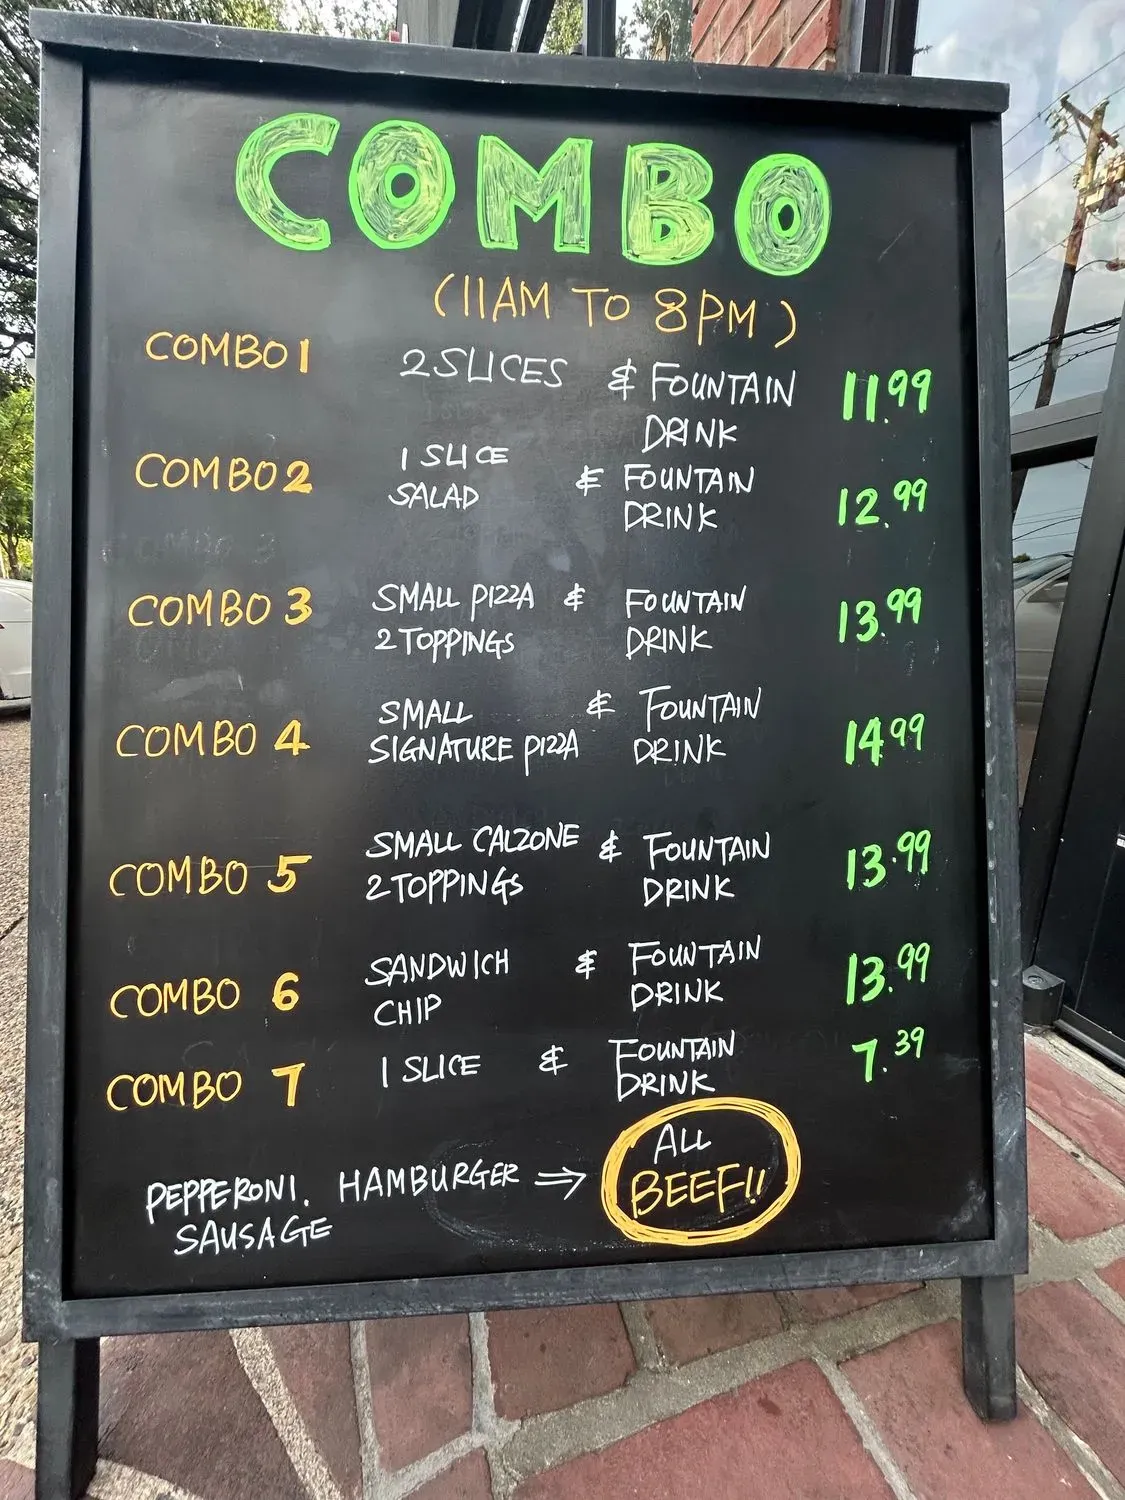 COMBO
(11AM TO 8PM)
COMBO 1 2 SLICES & FOUNTAIN 11.99
DRINK
COMBO 2 1 SLICE & FOUNTAIN 12.99
SALAD DRINK
COMBO 3 SMALL PIZZA & FOUNTAIN 13.99
2 TOPPINGS DRINK
COMBO 4 SMALL & FOUNTAIN 14.99
SIGNATURE PIZZA DRINK
COMBO 5 SMALL CALZONE & FOUNTAIN 13.99
2 TOPPINGS DRINK
COMBO 6 SANDWICH & FOUNTAIN 13.99
CHIP DRINK
COMBO 7 1 SLICE & FOUNTAIN 7.39
DRINK
PEPPERONI. HAMBURGER ⇒ ALL
SAUSAGE BEEF!!